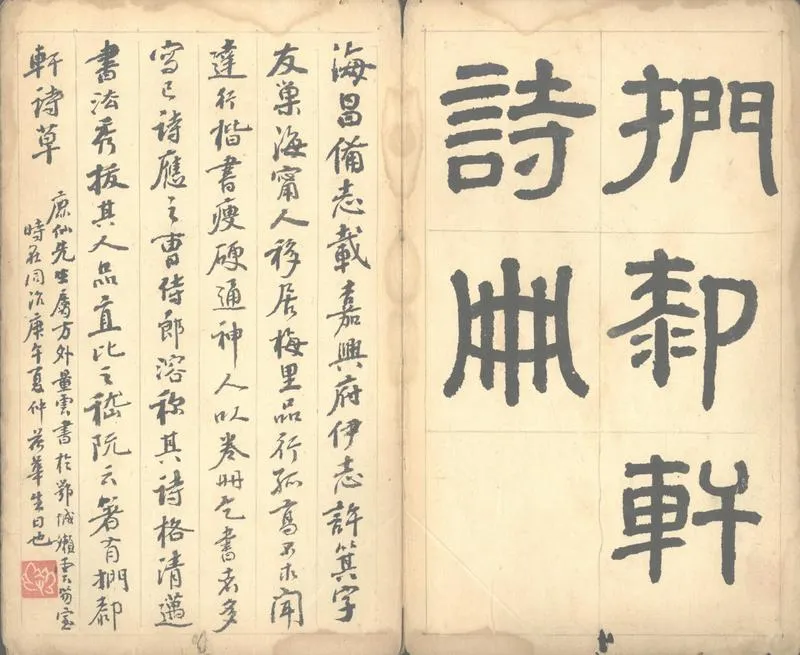 捫厀軒
詩冊
海昌備志載嘉興府伊志許箕字
友巢海甯人移居梅里品行孤高不求聞
達行楷書瘦硬通神人以卷冊乞書者多
寫已詩應之曹侍郎溶稱其詩格清邁
書法秀拔其人品直比之嵇阮云箸有捫厀
軒詩草
仙先生屬方外量雲書於鄂城嬾雲室
時在同治庚午夏仲荷華生日也